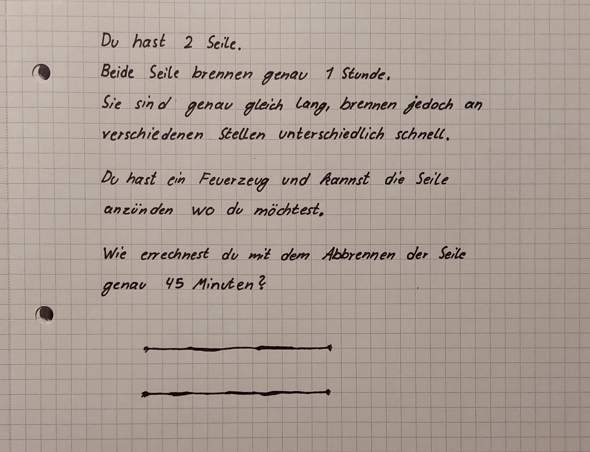 Du hast 2 Seile.
Beide Seile brennen genau 1 Stunde.
Sie sind genau gleich lang, brennen jedoch an
verschiedenen Stellen unterschiedlich schnell.
Du hast ein Feuerzeug und kannst die Seile
anzünden wo du möchtest.
Wie errechnest du mit dem Abbrennen der Seile
genau 45 Minuten?